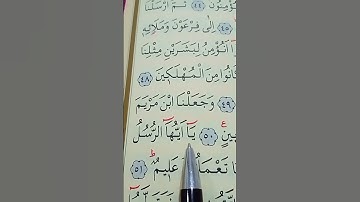 ؤْمِنُونَ ﴿٤٤﴾ ثُمَّ اَرْسَلْنَا
﴿٤٥﴾ اِلٰى فِرْعَوْنَ وَمَلَا۬ئِه۪
اَنُؤْمِنُ لِبَشَرَيْنِ مِثْلِنَا
انُوا مِنَ الْمُهْلَك۪ينَ ﴿٤٨﴾
﴿٤٩﴾ وَجَعَلْنَا ابْنَ مَرْيَمَ
ينٍ ﴿٥٠﴾ يَٓا اَيُّهَا الرُّسُلُ
تَعْمَلُ عَل۪يمٌ ﴿٥١﴾